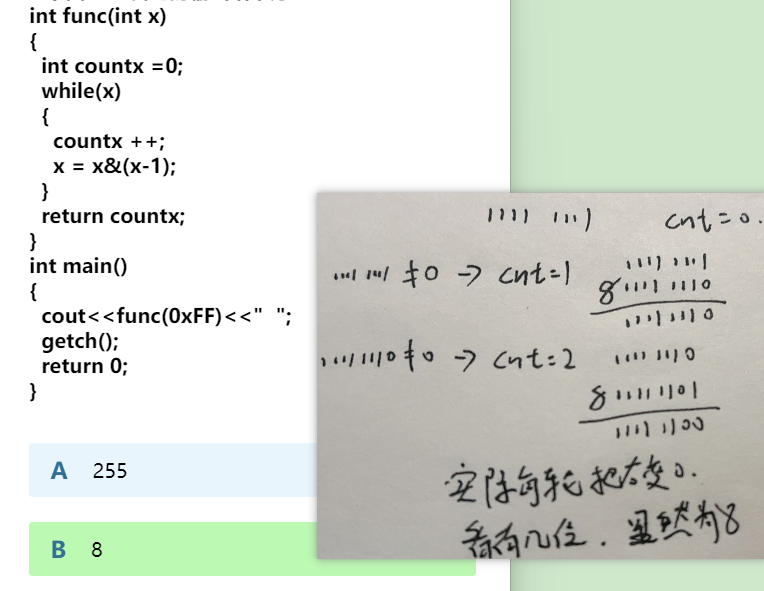 int func(int x)
{
int countx =0;
while(x)
{
countx ++;
x = x&(x-1);
}
return countx;
}
int main()
{
cout<<func(0xFF)<<" ";
getch();
return 0;
}
A 255
B 8
1111 1111 cnt=0.
1111 1111 ≠0 → cnt=1
1111 1111
& 1111 1110
1111 1110
1111 1110 ≠0 → cnt=2
1111 1110
& 1111 1101
1111 1100
实际每轮把右变0.
看有几位.显然为8